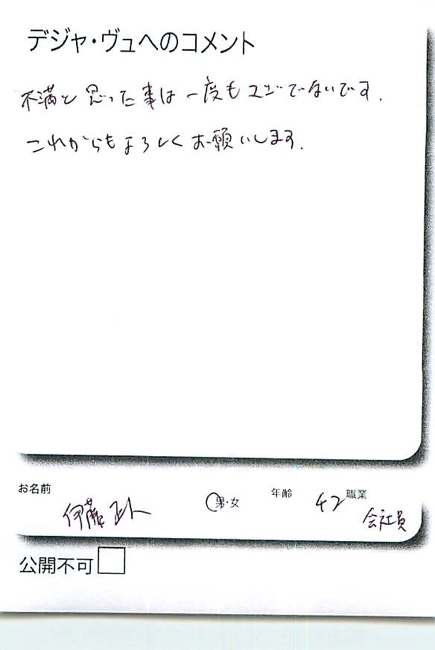 デジャ・ヴュへのコメント
不満と思った事は一度もないです.
これからもよろしくお願いします.
お名前
伊藤
男・女
年齢
42
職業
会社員
公開不可